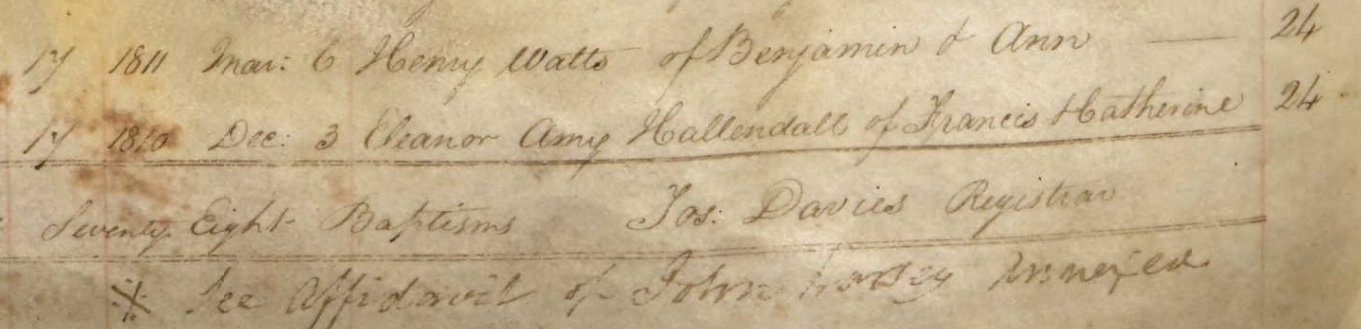 17 1811 Mar: 6 Henry Watts of Benjamin & Ann — 24
17 1810 Dec: 3 Eleanor Amy Hallendall of Francis & Catherine 24
Seventy Eight Baptisms Jos: Davies Registrar
※ See Affidavit of John annexed